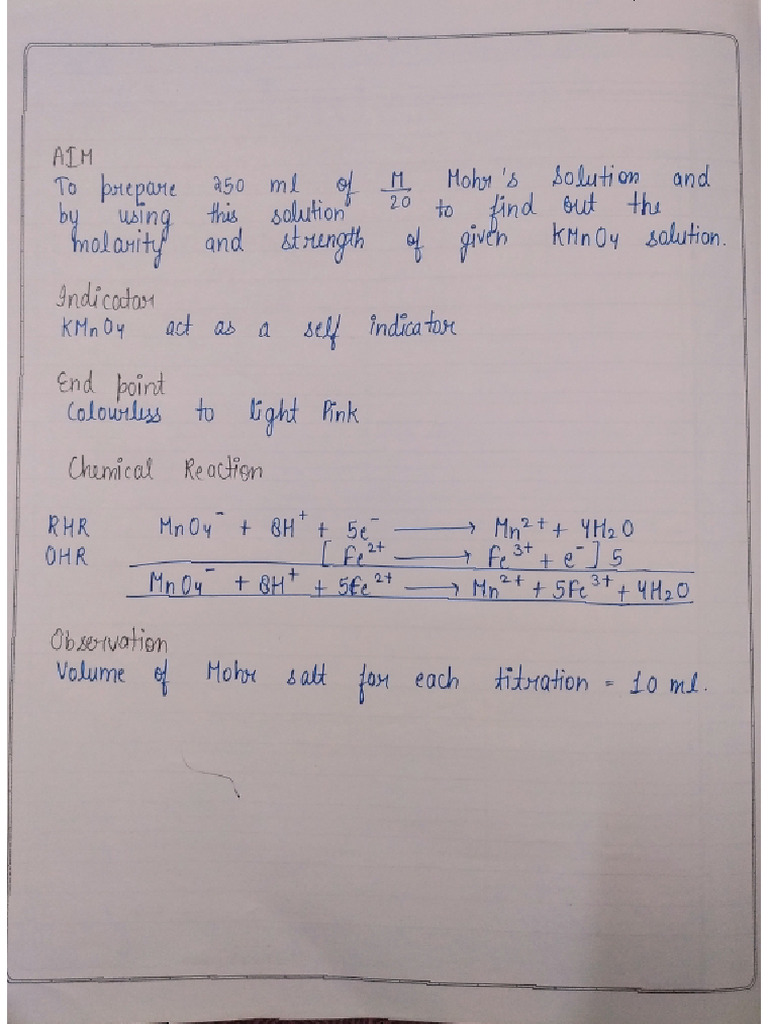 AIM
To prepare 250 ml of M/20 Mohr's solution and
by using this solution to find out the
molarity and strength of given KMnO4 solution.
Indicator
KMnO4 act as a self indicator
End point
Colourless to light Pink
Chemical Reaction
RHR MnO4⁻ + 8H⁺ + 5e⁻ ⟶ Mn²⁺ + 4H2O
OHR [ Fe²⁺ ⟶ Fe³⁺ + e⁻ ] 5
MnO4⁻ + 8H⁺ + 5Fe²⁺ ⟶ Mn²⁺ + 5Fe³⁺ + 4H2O
Observation
Volume of Mohr salt for each titration = 10 ml.